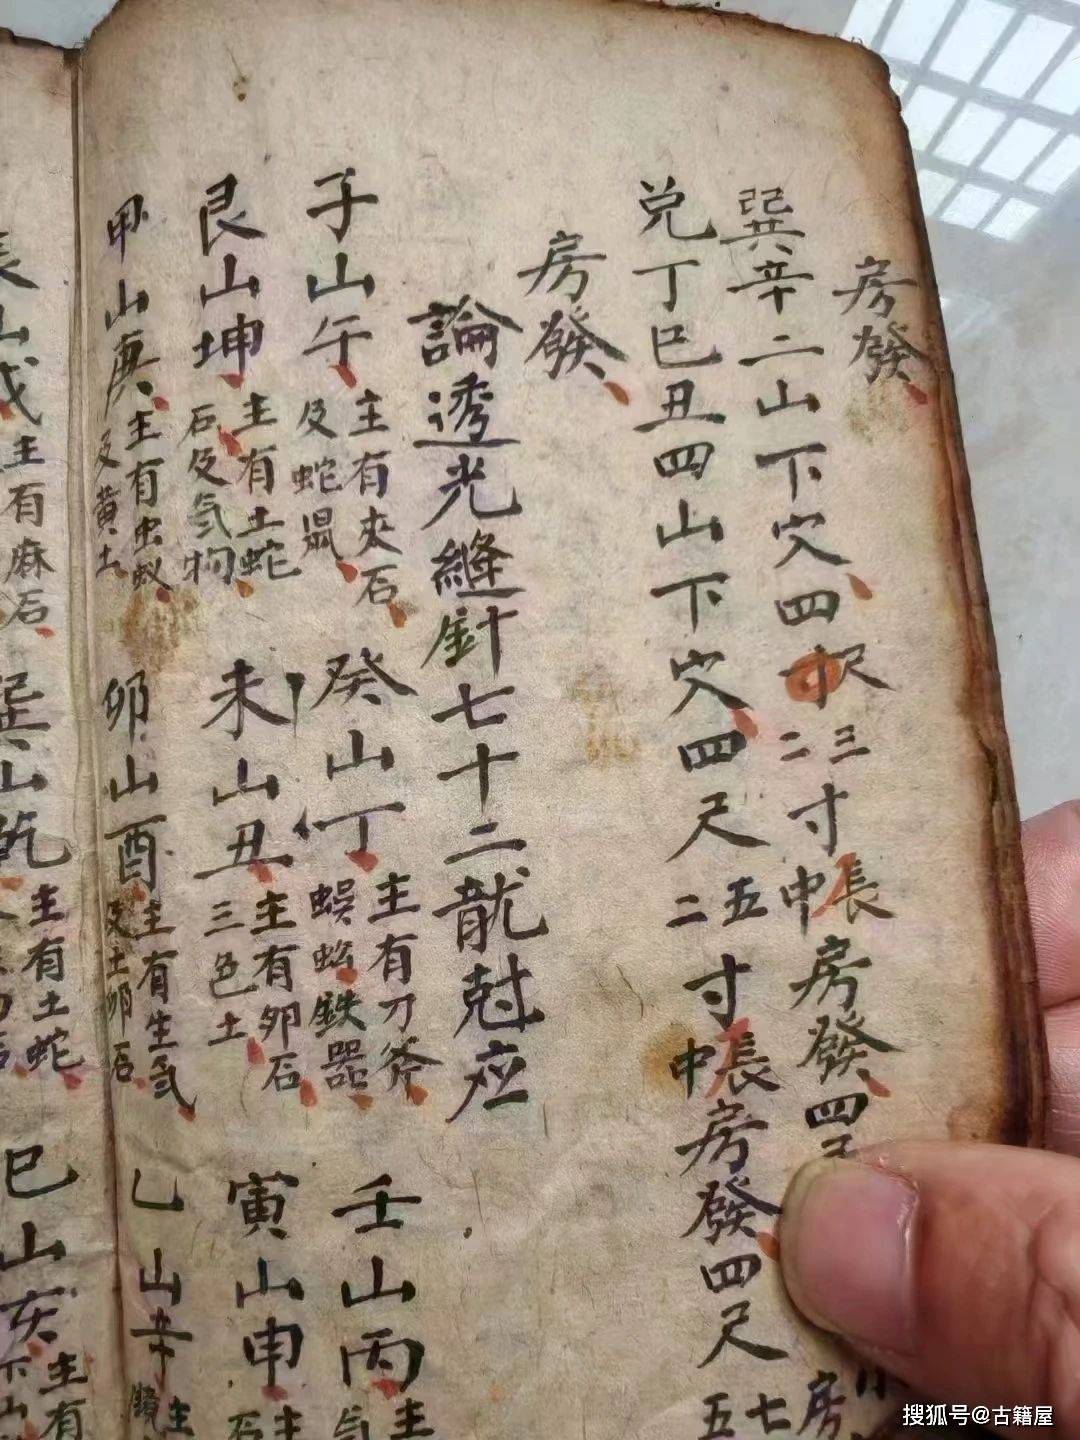 房發
巽辛二山下穴四尺二三寸中長房發四
兌丁巳丑四山下穴四尺二五寸中長房發四尺五七
房
房發
論透光縫針七十二龍尅应
子山午主有夾石及蛇鼠
癸山丁主有刀斧蜈蚣鉄器
壬山丙主
艮山坤主有土蛇石及氣物
未山丑主有卵石三色土
寅山申主石
甲山庚主有虫蚁及黄土
卯山酉主有生氣及土卵石
乙山辛主鏡
山戌主有麻石
巽山乾主有土蛇
巳山亥主有
搜狐号@古籍屋